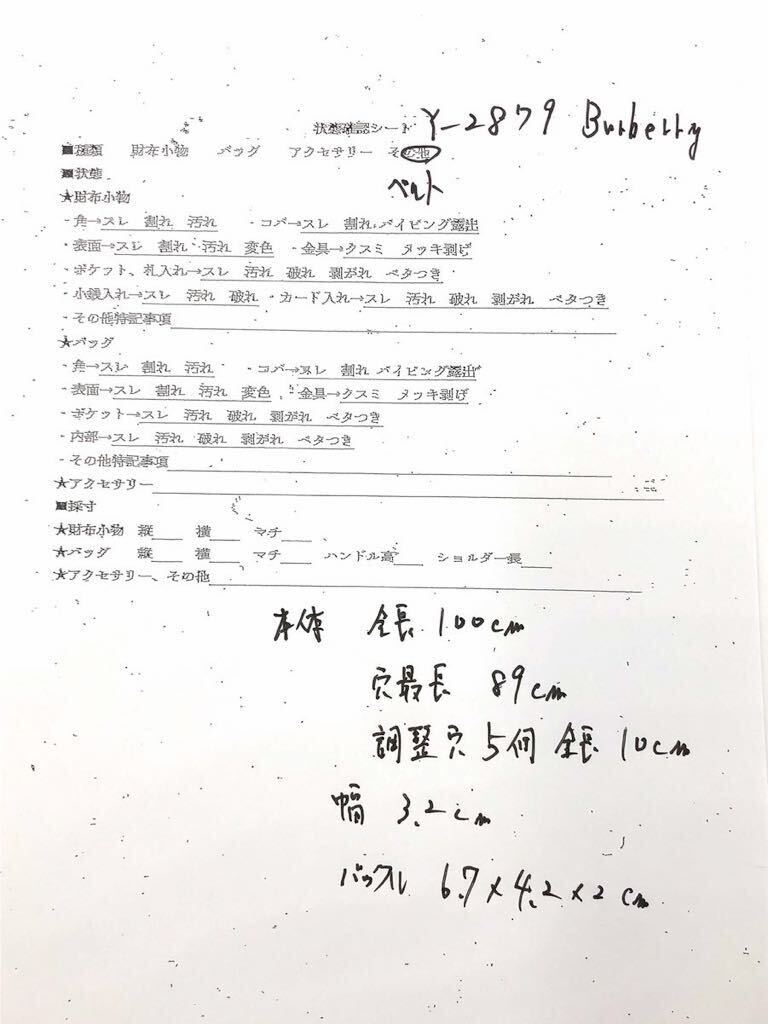 状態確認シート Y-2879 Burberry
■種類 財布小物 バッグ アクセサリー その他
■状態 ベルト
★財布小物
・角→スレ 割れ 汚れ ・コバ→スレ 割れ パイピング露出
・表面→スレ 割れ 汚れ 変色 ・金具→クスミ メッキ剥げ
・ポケット、札入れ→スレ 汚れ 破れ 剥がれ ベタつき
・小銭入れ→スレ 汚れ 破れ ・カード入れ→スレ 汚れ 破れ 剥がれ ベタつき
・その他特記事項
★バッグ
・角→スレ 割れ 汚れ ・コバ→スレ 割れ パイピング露出
・表面→スレ 割れ 汚れ 変色 ・金具→クスミ メッキ剥げ
・ポケット→スレ 汚れ 破れ 剥がれ ベタつき
・内部→スレ 汚れ 破れ 剥がれ ベタつき
・その他特記事項
★アクセサリー
■採寸
★財布小物 縦 横 マチ
★バッグ 縦 横 マチ ハンドル高 ショルダー長
★アクセサリー、その他
本体 全長 100cm
穴最長 89cm
調整穴 5個 全長 10cm
幅 3.2cm
バックル 6.7×4.2×2cm